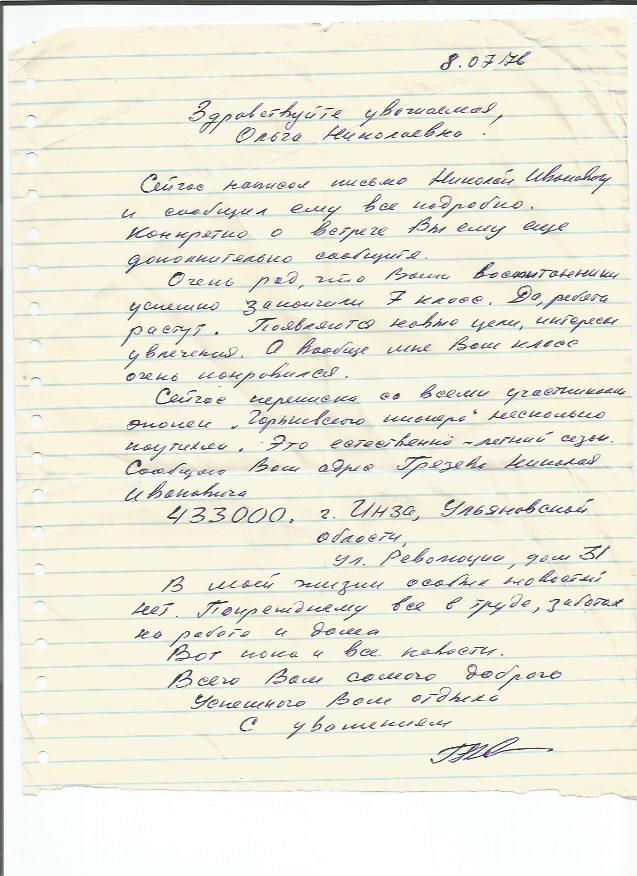 8.07.76
Здравствуйте уважаемая,
Ольга Николаевна.
Сейчас написал письмо Николай Ивановичу
и сообщил ему все подробно.
Конкретно о встрече Вы ему еще
дополнительно сообщите.
Очень рад, что Ваши воспитанники
успешно закончили 7 класс. Да, ребята
растут. Появляются новые цели, интересы
увлечения. А вообще мне Ваш класс
очень понравился.
Сейчас переписка со всеми участниками
эпопеи „Горьковского пионера“ несколько
поутихла. Это естественно – летний сезон.
Сообщаю Вам адрес Грязева Николая
Ивановича
433000. г. Инза, Ульяновской
области,
ул. Революции, дом 31
В моей жизни особых новостей
нет. Попрежднему все в труде, заботах
на работе и дома
Вот пока и все новости.
Всего Вам самого доброго
Успешного Вам отдыха
С уважением